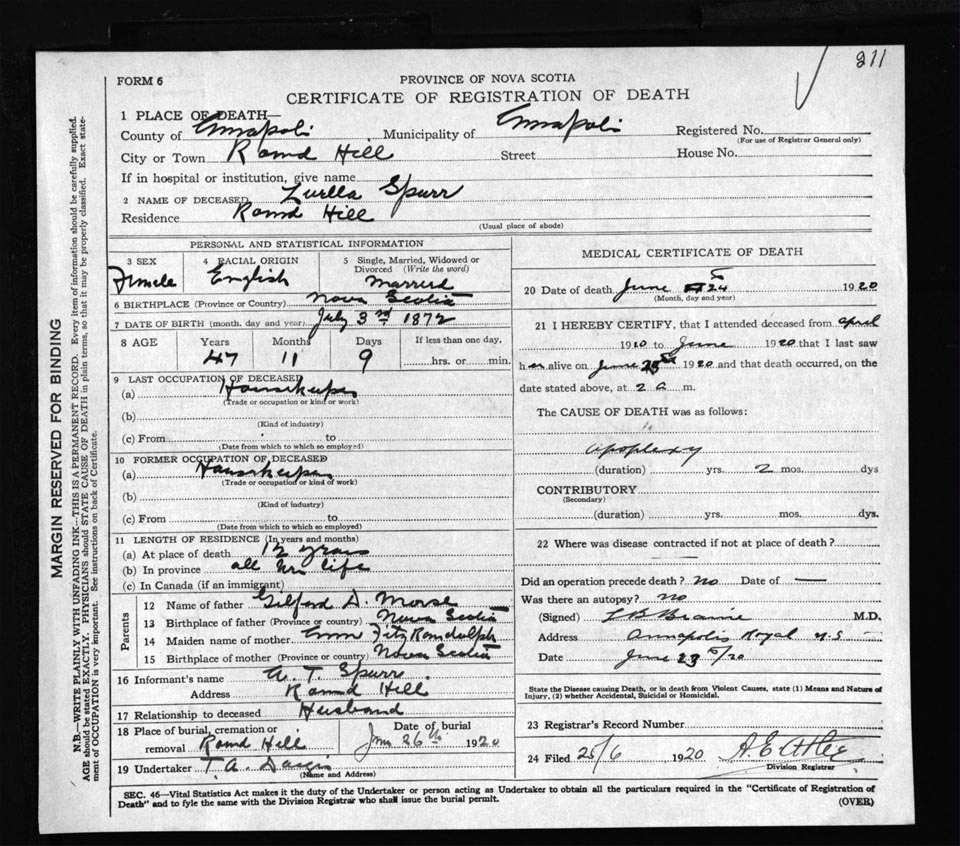 211
FORM 6
PROVINCE OF NOVA SCOTIA
CERTIFICATE OF REGISTRATION OF DEATH
1 PLACE OF DEATH—
County of Annapolis Municipality of Annapolis Registered No.
(For use of Registrar General only)
City or Town Round Hill Street House No.
If in hospital or institution, give name
2 NAME OF DECEASED Luella Spurr
Residence Round Hill
(Usual place of abode)
PERSONAL AND STATISTICAL INFORMATION
3 SEX Female
4 RACIAL ORIGIN English
5 Single, Married, Widowed or Divorced (Write the word) Married
6 BIRTHPLACE (Province or Country) Nova Scotia
7 DATE OF BIRTH (month, day and year) July 3rd 1872
8 AGE Years Months Days If less than one day,
47 11 9 hrs. or min.
9 LAST OCCUPATION OF DECEASED
(a) Housekeeper
(Trade or occupation or kind or work)
(b)
(Kind of industry)
(c) From to
(Date from which to which so employed)
10 FORMER OCCUPATION OF DECEASED
(a) Housekeeper
(Trade or occupation or kind of work)
(b)
(Kind of industry)
(c) From to
(Date from which to which so employed)
11 LENGTH OF RESIDENCE (In years and months)
(a) At place of death 12 years
(b) In province all her life
(c) In Canada (if an immigrant)
Parents
12 Name of father Gilford D. Morse
13 Birthplace of father (Province or country) Nova Scotia
14 Maiden name of mother Emm Fitz Randolph
15 Birthplace of mother (Province or country) Nova Scotia
16 Informant's name A. T. Spurr
Address Round Hill
17 Relationship to deceased Husband
18 Place of burial, cremation or removal Round Hill
Date of burial June 26th 1920
19 Undertaker T. A.
(Name and Address)
MEDICAL CERTIFICATE OF DEATH
20 Date of death June 24 1920
(Month, day and year)
21 I HEREBY CERTIFY, that I attended deceased from April
1920 to June 1920 that I last saw
her alive on June 23 1920 and that death occurred, on the
date stated above, at 2 a m.
The CAUSE OF DEATH was as follows:
apoplexy
(duration) yrs. 2 mos. dys
CONTRIBUTORY
(Secondary)
(duration) yrs. mos. dys.
22 Where was disease contracted if not at place of death?
Did an operation precede death? No Date of —
Was there an autopsy? No
(Signed) L B Braine M.D.
Address Annapolis Royal N.S
Date June 23/20
State the Disease causing Death, or in death from Violent Causes, state (1) Means and Nature of
Injury, (2) whether Accidental, Suicidal or Homicidal.
23 Registrar's Record Number
24 Filed 25/6 1920 A. E. Atlee
Division Registrar
SEC. 46—Vital Statistics Act makes it the duty of the Undertaker or person acting as Undertaker to obtain all the particulars required in the "Certificate of Registration of
Death" and to fyle the same with the Division Registrar who shall issue the burial permit.
(OVER)
MARGIN RESERVED FOR BINDING
N.B.—WRITE PLAINLY WITH UNFADING INK—THIS IS A PERMANENT RECORD. Every item of information should be carefully supplied.
AGE should be stated EXACTLY. PHYSICIANS should STATE CAUSE OF DEATH in plain terms, so that it may be properly classified. Exact state-
ment of OCCUPATION is very important. See instructions on back of Certificate.